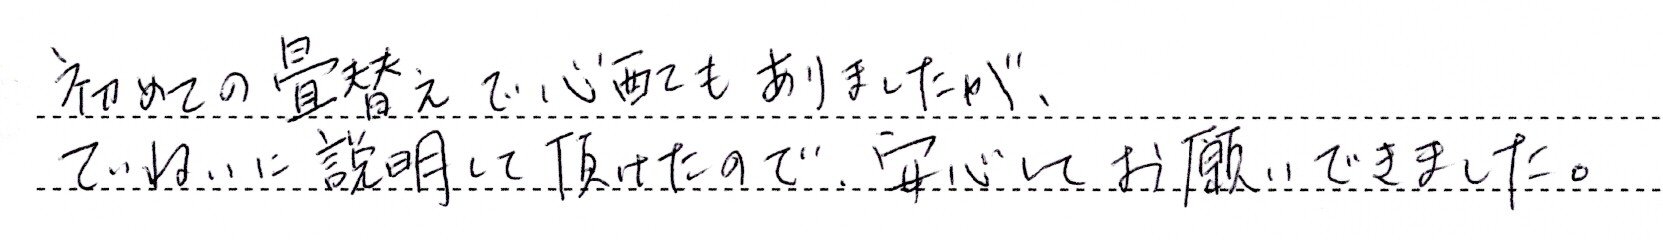 初めての畳替えで心配でもありましたが、
ていねいに説明して頂けたので、安心してお願いできました。